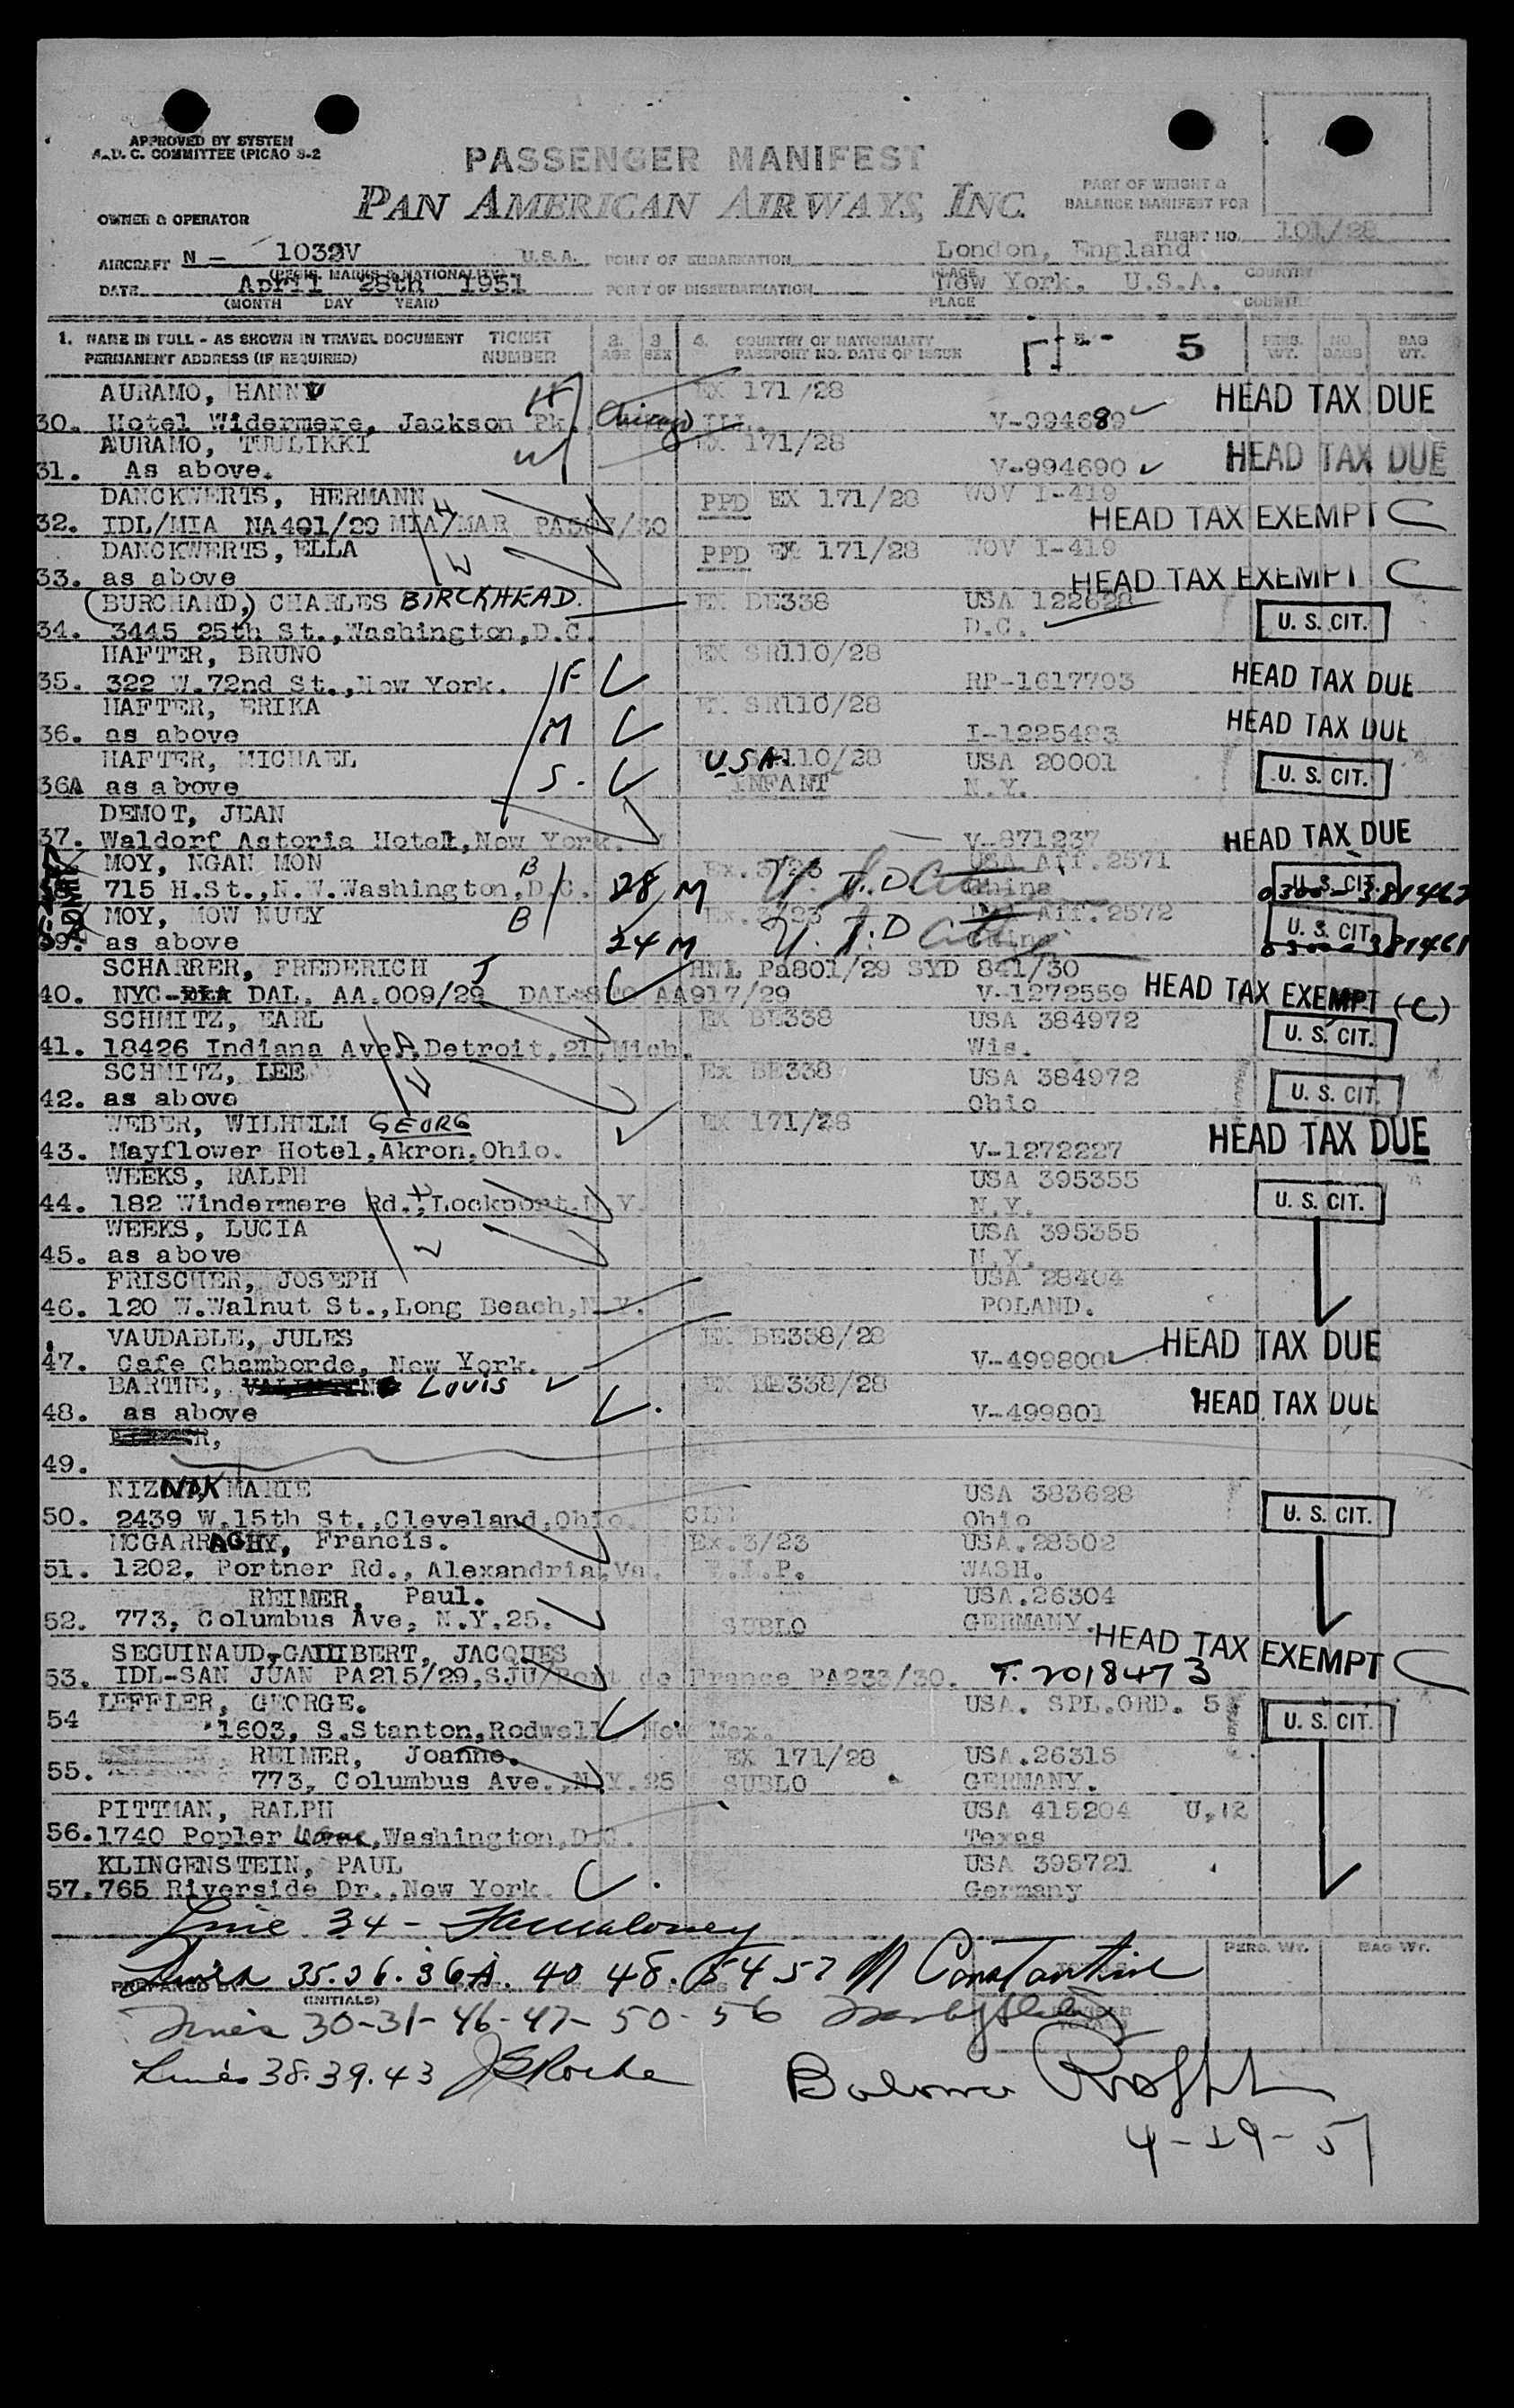 APPROVED BY SYSTEM
A.D.C. COMMITTEE (PICAO S-2
PASSENGER MANIFEST
PAN AMERICAN AIRWAYS, INC.
PART OF WEIGHT &
BALANCE MANIFEST FOR
OWNER & OPERATOR
FLIGHT NO. 101/28
AIRCRAFT N - 1032V U.S.A. POINT OF EMBARKATION London, England
(REGIS. MARKS & NATIONALITY) PLACE COUNTRY
DATE April 28th 1951 PORT OF DISEMBARKATION New York. U.S.A.
(MONTH DAY YEAR) PLACE COUNTRY
1. NAME IN FULL - AS SHOWN IN TRAVEL DOCUMENT TICKET 2. 3 4. COUNTRY OF NATIONALITY 5 PERS. NO. BAG
PERMANENT ADDRESS (IF REQUIRED) NUMBER AGE SEX PASSPORT NO. DATE OF ISSUE WT. BAGS WT.
AURAMO, HANNU H EX 171/28 HEAD TAX DUE
30. Hotel Widermere, Jackson Pk. Chicago ILL. V-994689
AURAMO, TUULIKKI W EX 171/28 HEAD TAX DUE
31. As above. V-994690
DANCKWERTS, HERMANN H PPD EX 171/28 WOV I-419
32. IDL/MIA NA401/29 MIA/MAR HEAD TAX EXEMPT C
DANCKWERTS, ELLA W PPD EX 171/28 WOV I-419
33. as above HEAD TAX EXEMPT C
(BURCHARD,) CHARLES BIRCKHEAD. EX BE338 USA 122628
34. 3445 25th St., Washington, D.C. D.C. U. S. CIT.
HAFTER, BRUNO EX SR110/28
35. 322 W.72nd St., New York. F RP-1617793 HEAD TAX DUE
HAFTER, ERIKA EX SR110/28
36. as above M I-1225483 HEAD TAX DUE
HAFTER, MICHAEL U.S.A. 110/28 USA 20001
36A as above S. INFANT N.Y. U. S. CIT.
DEMOT, JEAN
37. Waldorf Astoria Hotel, New York. V-871237 HEAD TAX DUE
MOY, NGAN MON B Ex.3/23 USA Aff.2571
715 H.St., N.W. Washington, D.C. 28 M China U. S. CIT.
MOY, MOW NUEY B Ex.3/23 Aff.2572
39. as above 24 M China U. S. CIT.
SCHARRER, FREDERICH J HNL Pa801/29 SYD 841/30
40. NYC- DAL. AA.009/29 AA917/29 V-1272559 HEAD TAX EXEMPT (C)
SCHMITZ, EARL EX BE338 USA 384972
41. 18426 Indiana Ave, Detroit, 21, Mich. Wis. U. S. CIT.
SCHMITZ, LEE Ex BE338 USA 384972
42. as above Ohio U. S. CIT.
WEBER, WILHELM GEORG EX 171/28
43. Mayflower Hotel, Akron, Ohio. V-1272227 HEAD TAX DUE
WEEKS, RALPH USA 395355
44. 182 Windermere Rd., Lockport, N.Y. N.Y. U. S. CIT.
WEEKS, LUCIA USA 395355
45. as above N.Y.
FRISCHER, JOSEPH USA 28404
46. 120 W.Walnut St., Long Beach, N.Y. POLAND.
VAUDABLE, JULES EX BE338/28 HEAD TAX DUE
47. Cafe Chamborde, New York. V-499800
BARTHE, Louis EX BE338/28 HEAD TAX DUE
48. as above V-499801
49.
NIZNAK, MARIE USA 383628
50. 2439 W.15th St., Cleveland, Ohio. CLE Ohio U. S. CIT.
MCGARRAGHY, Francis. Ex.3/23 USA.28502
51. 1202, Portner Rd., Alexandria, Va. WASH.
REIMER, Paul. USA.26304
52. 773, Columbus Ave, N.Y.25. SUBLO GERMANY.
SEGUINAUD-GAMBERT, JACQUES HEAD TAX EXEMPT C
53. IDL-SAN JUAN PA215/29, SJU/Fort de France PA233/30. T. 2018473
LEFFLER, GEORGE. USA. SPL.ORD. 5
54 1603, S.Stanton, Rodwell New Mex. U. S. CIT.
REIMER, Joanne. EX 171/28 USA.26315
55. 773, Columbus Ave., N.Y.25 SUBLO GERMANY.
PITTMAN, RALPH USA 415204 U,12
56. 1740 Popler Washington, D.C. Texas
KLINGENSTEIN, PAUL USA 395721
57. 765 Riverside Dr., New York. Germany
Line 34 -
35.36.36A. 40 48. 54 57 M Constantine
PREPARED BY (INITIALS) PERS. WT. BAG WT.
Lines 30-31-46-47-50-56
Lines 38.39.43 Roche
4-29-51